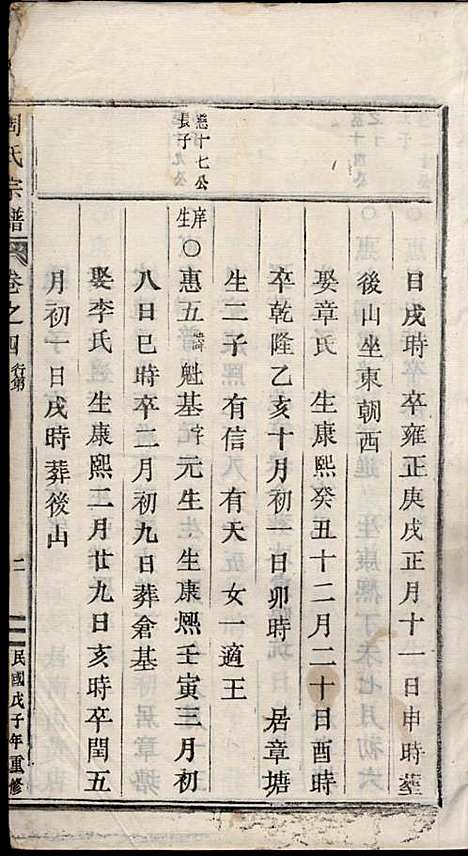 日戌時 卒雍正庚戌正月十一日申時葬
後山坐東朝西
娶章氏 生康熙癸丑十二月二十日酉時
卒乾隆乙亥十月初一日卯時 居章塘
生二子 有信 有天 女一適王
憑十七公
長子
庠生○惠五諱魁基字元生 生康熙壬寅三月初
八日巳時卒二月初九日葬倉基
娶李氏 生康熙二月廿九日亥時卒閏五
月初一日戌時葬後山
周氏宗譜 卷之四 行第 二 民國戊子年重修